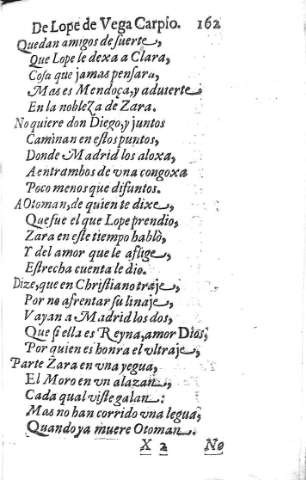 De Lope de Vega Carpio. 162
Quedan amigos de suerte,
Que Lope le dexa a Clara,
Cosa que jamas pensara,
Mas es Mendoça, y aduierte
En la nobleza de Zara.
No quiere don Diego, y juntos
Caminan en estos puntos,
Donde Madrid los aloxa,
A entrambos de vna congoxa
Poco menos que difuntos.
A Otoman, de quien te dixe,
Que fue el que Lope prendio,
Zara en este tiempo hablò,
Y del amor que le aflige,
Estrecha cuenta le dio.
Dize, que en Christiano traje,
Por no afrentar su linaje,
Vayan a Madrid los dos,
Que si ella es Reyna, amor Dios,
Por quien es honra el vltraje,
Parte Zara en vna yegua,
El Moro en vn alazan,
Cada qual viste galan:
Mas no han corrido vna legua,
Quando ya muere Otoman.
X 2 No